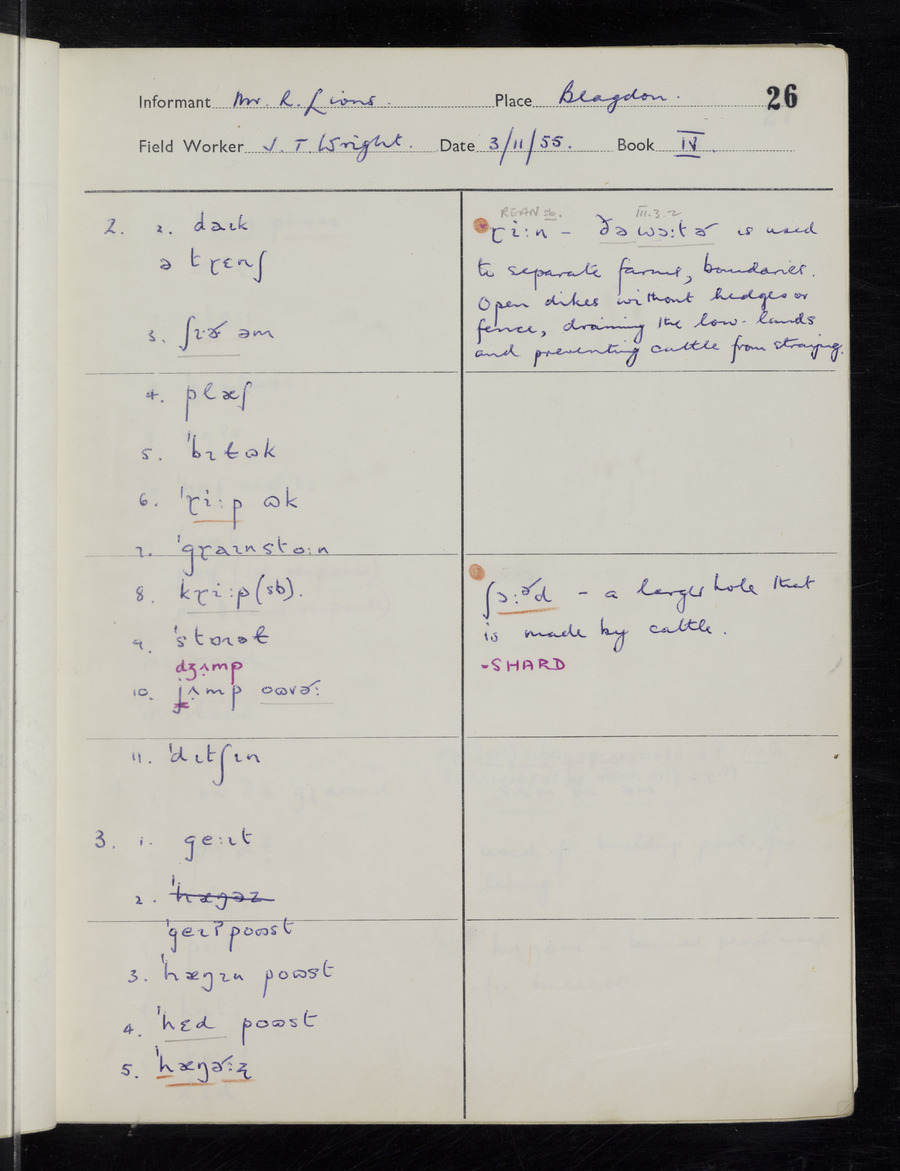 Informant Mr. R. Lions. Place Blagdon. 26
Field Worker J. T. Wright. Date 3/11/55. Book IV.
2. 2. daɪk
ə tɽɛnʃ
3. ʃɪɚ əm
4. plæʃ
5. ˈbɪtɷk
6. ˈɽi:p ɷk
7. ˈgɽaɪnsto:n
8. kɽi:p (sb).
9. ˈstoɪəɫ
dʒʌmp
10. jʌmp oɷvɚ:
11. ˈdɪtʃɪn
3. 1. ge:ɪt
2. ˈhæŋəz
ˈgeɪʔpoɷst
3. ˈhæŋɪn poɷst
4. ˈhɛd poɷst
5. ˈhæŋɚ:ʐ
REAN sb. III.3.2
ɽi:n – ðəwɔ:tɚ is used
to separate farms, boundaries.
Open dikes without hedges or
fence, draining the low-lands
and preventing cattle from straying.
ʃɔ:ɚd – a larger hole that
is made by cattle.
-SHARD